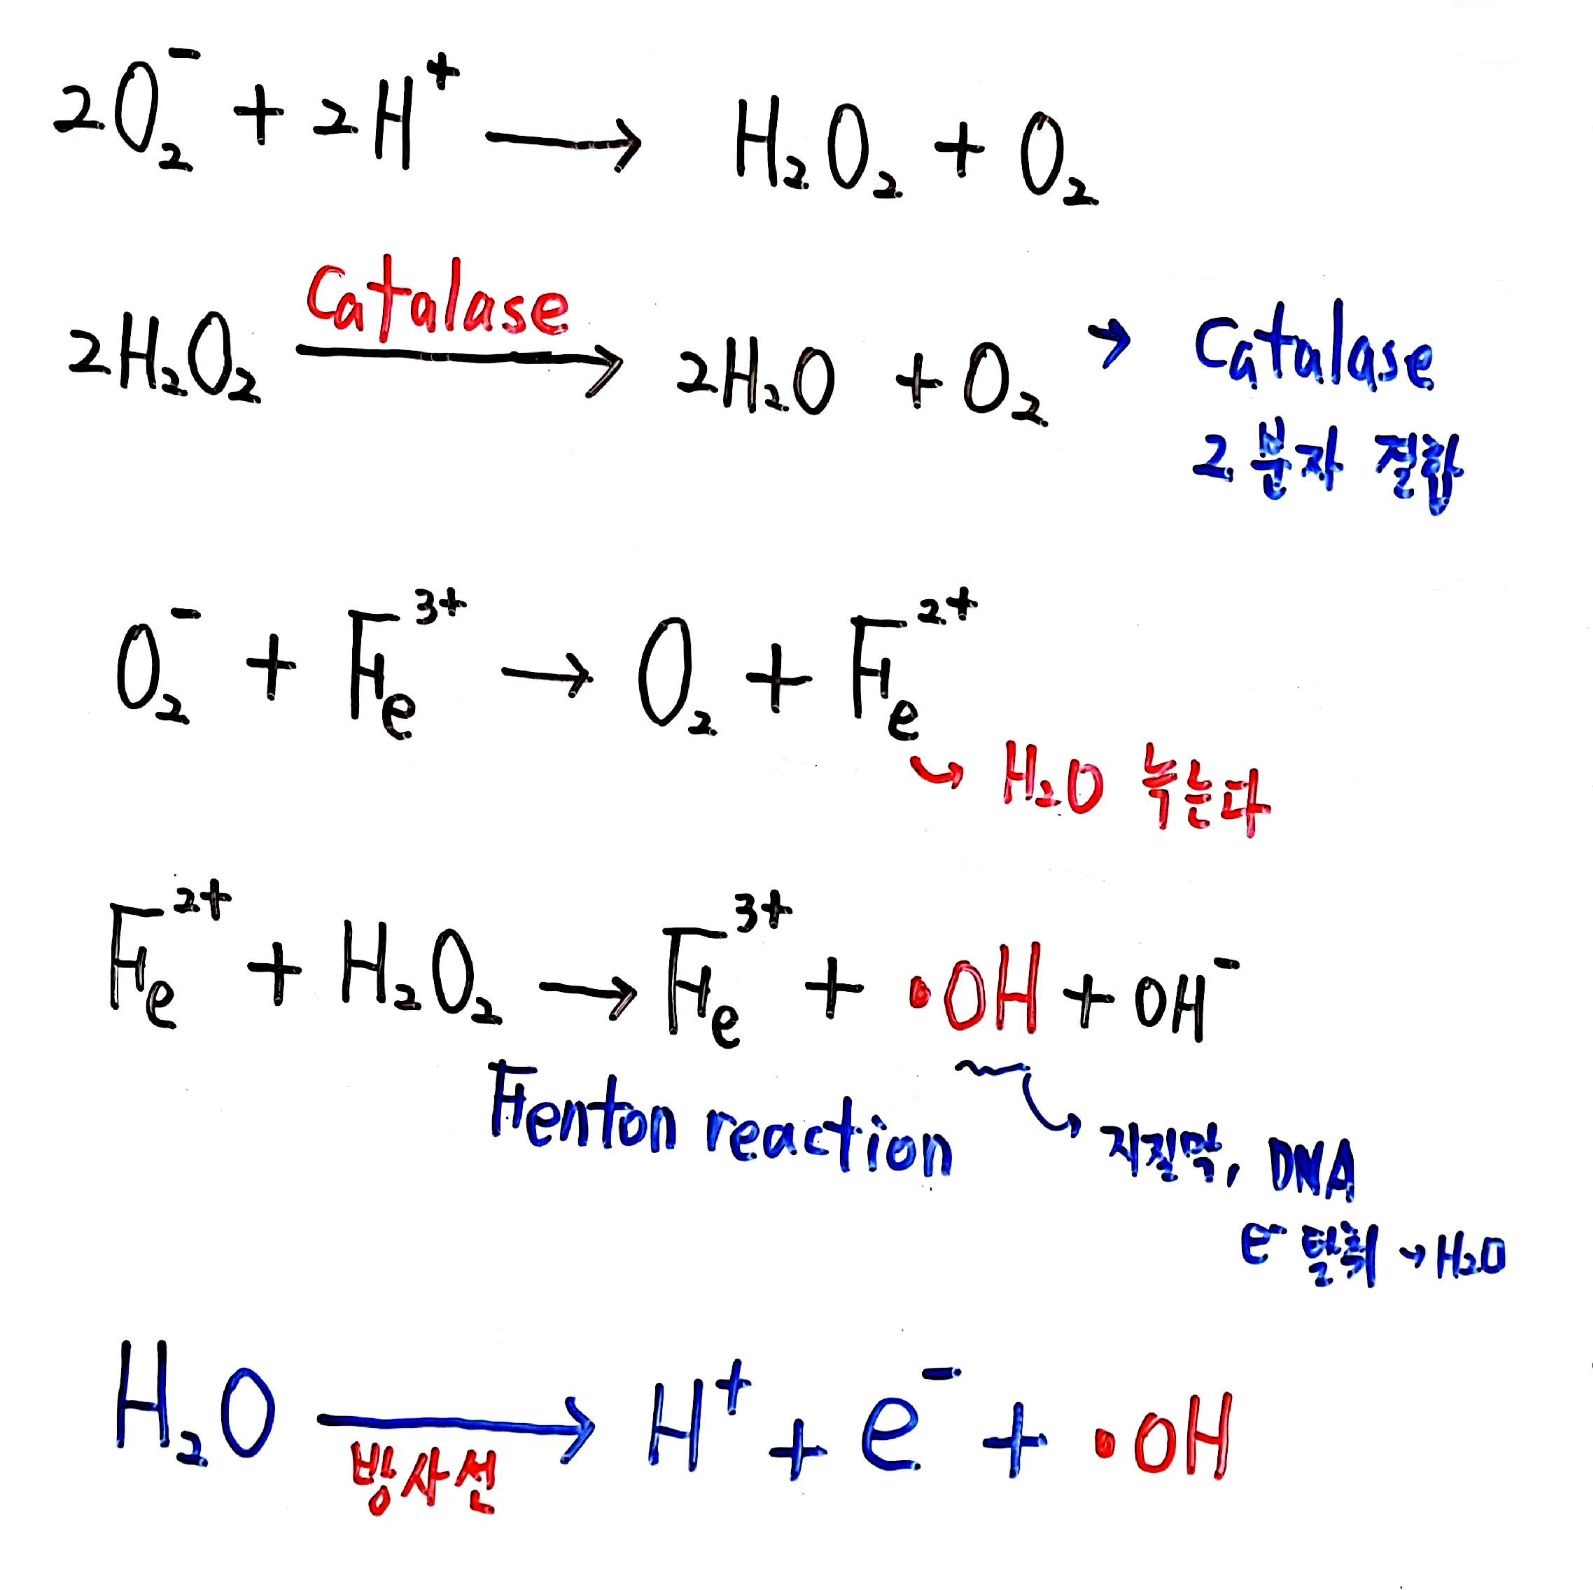 2O₂⁻ + 2H⁺ → H₂O₂ + O₂
Catalase
2H₂O₂ → 2H₂O + O₂ → Catalase
2분자 결합
O₂⁻ + Fe³⁺ → O₂ + Fe²⁺
↪ H₂O 녹는다
Fe²⁺ + H₂O₂ → Fe³⁺ + •OH + OH⁻
Fenton reaction
↪ 지질막, DNA
e⁻ 탈취 → H₂O
H₂O → H⁺ + e⁻ + •OH
방사선